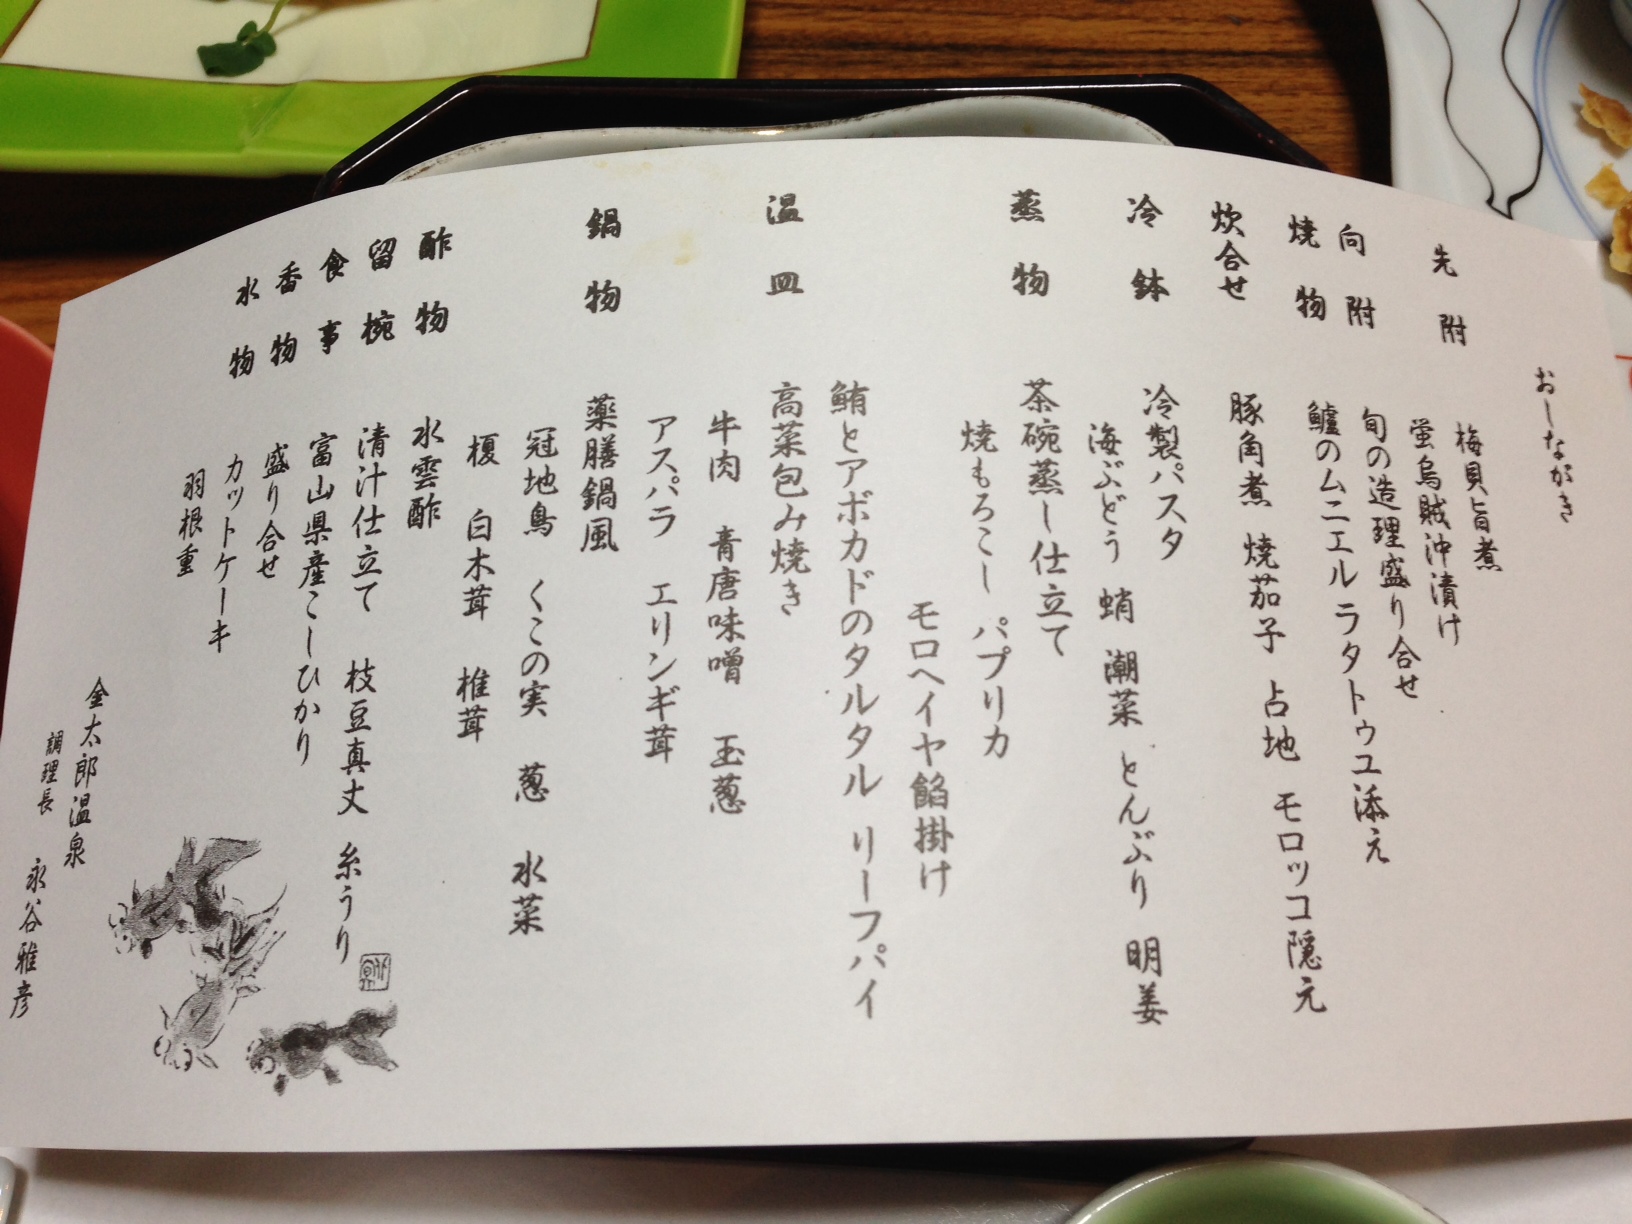 おしながき
先附 梅貝旨煮
蛍烏賊沖漬け
向附 旬の造理盛り合せ
焼物 鱸のムニエル ラタトゥユ添え
炊合せ 豚角煮 焼茄子 占地 モロッコ隠元
冷鉢 冷製パスタ
海ぶどう 蛸 潮菜 とんぶり 明姜
蒸物 茶碗蒸し仕立て
焼もろこし パプリカ
モロヘイヤ餡掛け
鮪とアボカドのタルタル リーフパイ
温皿 高菜包み焼き
牛肉 青唐味噌 玉葱
アスパラ エリンギ茸
鍋物 薬膳鍋風
冠地鳥 くこの実 葱 水菜
榎 白木茸 椎茸
酢物 水雲酢
留椀 清汁仕立て 枝豆真丈 糸うり
食事 富山県産こしひかり
香物 盛り合せ
水物 カットケーキ
羽根重
金太郎温泉
調理長 永谷雅彦